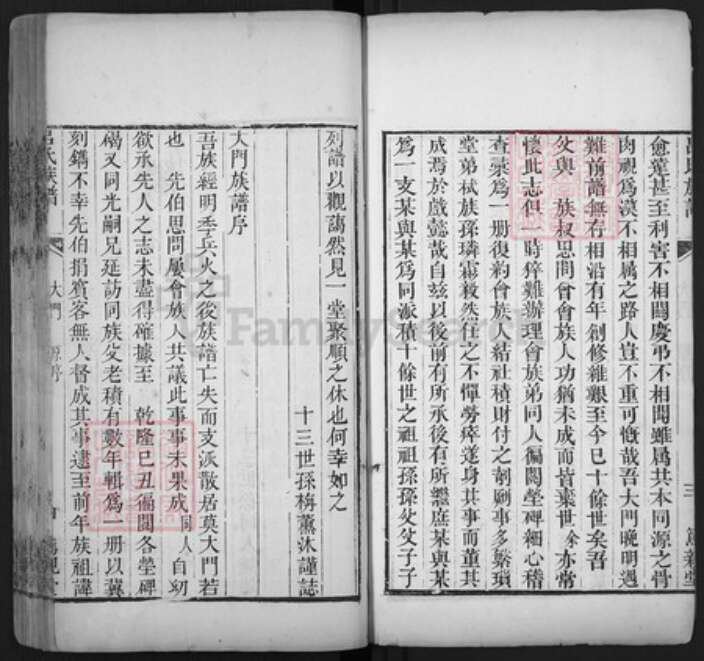 愈遠甚至利害不相關慶弔不相聞雖屬共本同源之骨
肉視為漠不相屬之路人豈不重可慨哉吾大門晚明遇
難前譜無存相沿有年創修維艱至今已十餘世矣吾
父與 族叔思問曾會族人功猶未成而皆棄世余亦常
懷此志但一時猝難辦理會族弟同人徧閱塋碑細心稽
查彙為一册復約會族人結社積財付之剞劂事多繁瑣
堂弟栻族孫璘霱毅然任之不憚勞瘁遂身其事而董其
成焉於戲懿哉自茲以後前有所承後有所繼庶某與某
為一支某與某為同派積十餘世之祖祖孫孫父父子子
列譜以觀藹然見一堂聚順之休也何幸如之
十三世孫梅薰沐謹誌
大門族譜序
吾族經明季兵火之後族譜亡失而支派散居莫大門若
也 先伯思問屢會族人共議此事事未果成同人自幼
欲承先人之志未盡得確據至 乾隆己丑徧閱各塋碑
碣又同光嗣兄延訪同族父老積有數年輯為一册以冀
刻鐫不幸先伯捐賓客無人督成其事逮至前年族祖諱
呂氏族譜 大門 原序
FamilySearch